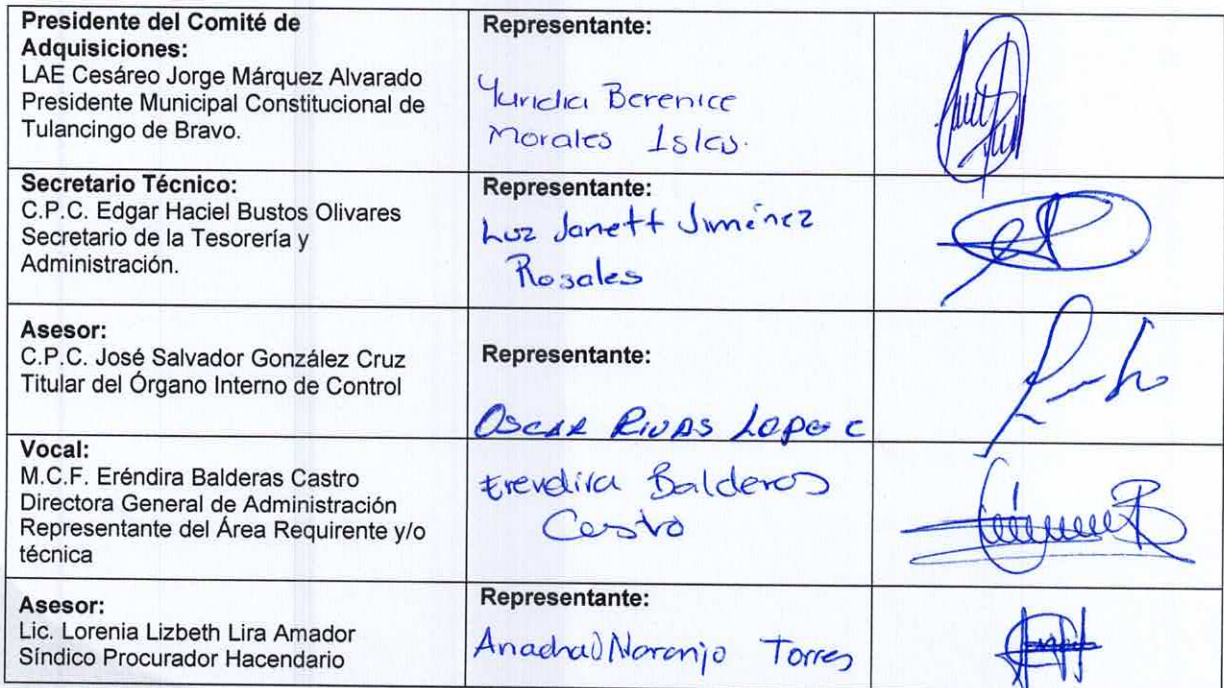 Presidente del Comité de
Adquisiciones:
LAE Cesáreo Jorge Márquez Alvarado
Presidente Municipal Constitucional de
Tulancingo de Bravo.
Representante:
Yuridia Berenice
Morales Islas.
Secretario Técnico:
C.P.C. Edgar Haciel Bustos Olivares
Secretario de la Tesorería y
Administración.
Representante:
Luz Janett Jiménez
Rosales
Asesor:
C.P.C. José Salvador González Cruz
Titular del Órgano Interno de Control
Representante:
OSCAR RIVAS LOPEZ
Vocal:
M.C.F. Eréndira Balderas Castro
Directora General de Administración
Representante del Área Requirente y/o
técnica
Erendira Balderas
Castro
Asesor:
Lic. Lorenia Lizbeth Lira Amador
Síndico Procurador Hacendario
Representante:
Naranjo Torres